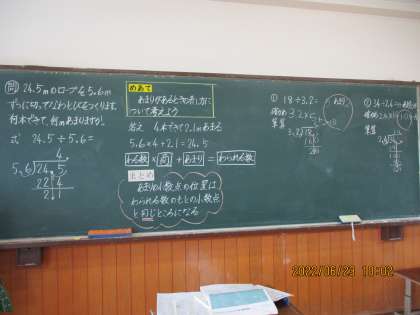 問 24.5mのロープを5.6m
ずつに切ってなわとびをつくります。
何本できて、何mあまりますか。
式 24.5÷5.6=
4.
5.6 24.5
22 4
2.1
めあて
あまりがあるときの表し方に
ついて考えよう
答え 4本できて2.1mあまる
5.6×4+2.1=24.5
わる数×商+あまり=わられる数
まとめ
あまりの小数点の位置は
わられる数のもとの小数点
と同じところになる
① 18÷3.2=
確め 3.2×5
筆算
あまり
② 34÷2.6=
確め 2.6×
筆算
2022/06/23 10:02